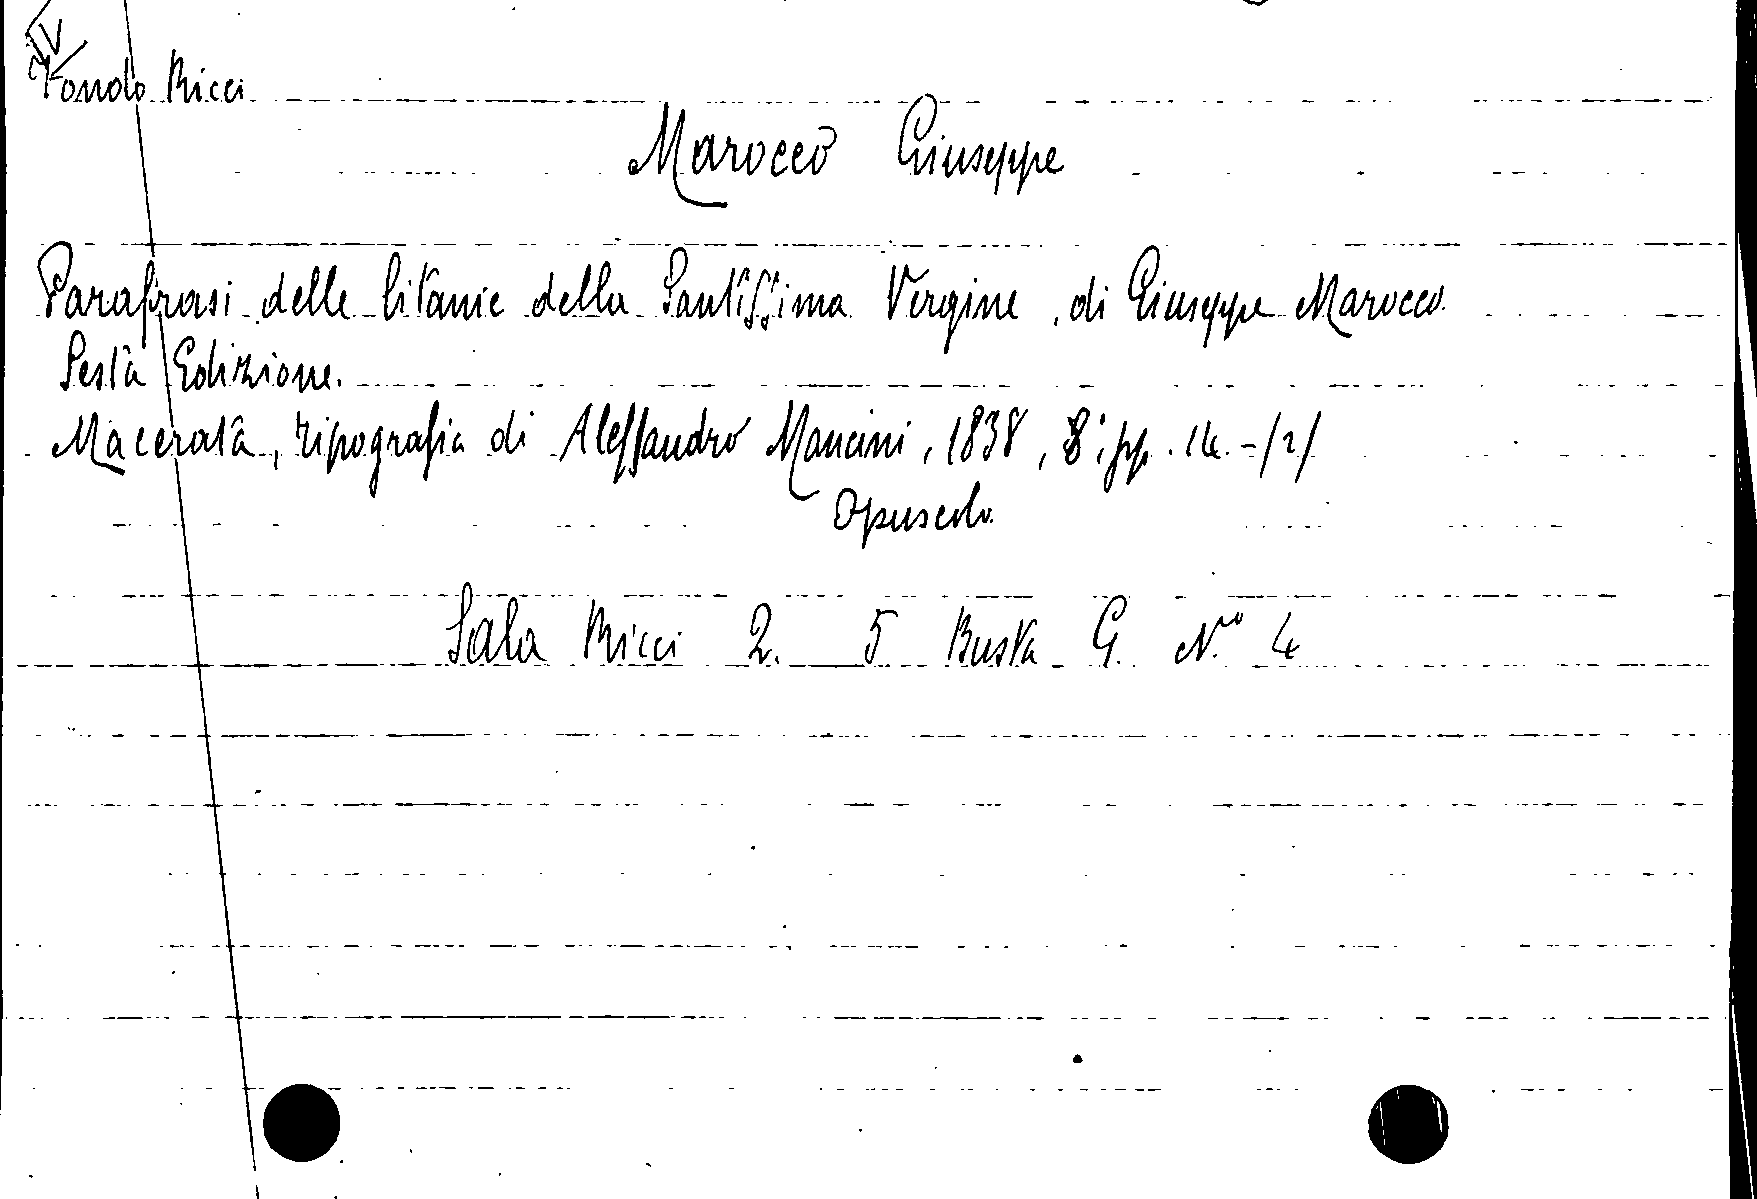 Fondo Ricci
Marocco Giuseppe
Parafrasi delle litanie della Santissima Vergine, di Giuseppe Marocco.
Sesta Edizione.
Macerata, tipografia di Alessandro Mancini, 1838, 8°, pp. 14.-/2/
Opuscolo.
Sala Ricci 2. 5 Busta G. N.ro 4